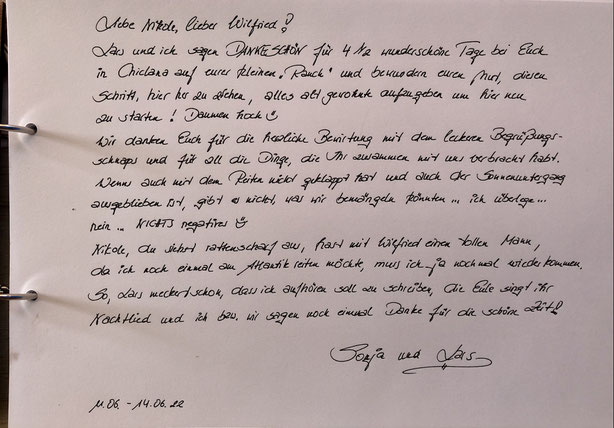 Liebe Nikole, lieber Wilfried!
Lars und ich sagen DANKESCHÖN für 4 1/2 wunderschöne Tage bei Euch
in Chiclana auf eurer kleinen "Ranch" und bewundern euren Mut, diesen
Schritt, hier her zu ziehen, alles alt gewohnte aufzugeben um hier neu
zu starten! Daumen hoch ☺
Wir danken Euch für die herzliche Bewirtung mit dem leckeren Begrüßungs-
schnaps und für all die Dinge, die Ihr zusammen mit uns verbracht habt.
Wenns auch mit dem Reiten nicht geklappt hat und auch der Sonnenuntergang
ausgeblieben ist, gibt es nichts, was wir bemängeln könnten... ich überlege...
nein... NICHTS negatives ☺
Nikole, du siehst rattenscharf aus, hast mit Wilfried einen tollen Mann,
da ich noch einmal am Atlantik reiten möchte, muss ich ja nochmal wiederkommen.
So, Lars meckert schon, dass ich aufhören soll zu schreiben, die Eule singt ihr
Nachtlied und ich bzw. wir sagen noch einmal Danke für die schöne Zeit!
Sonja und Lars
11.06. - 14.06.22